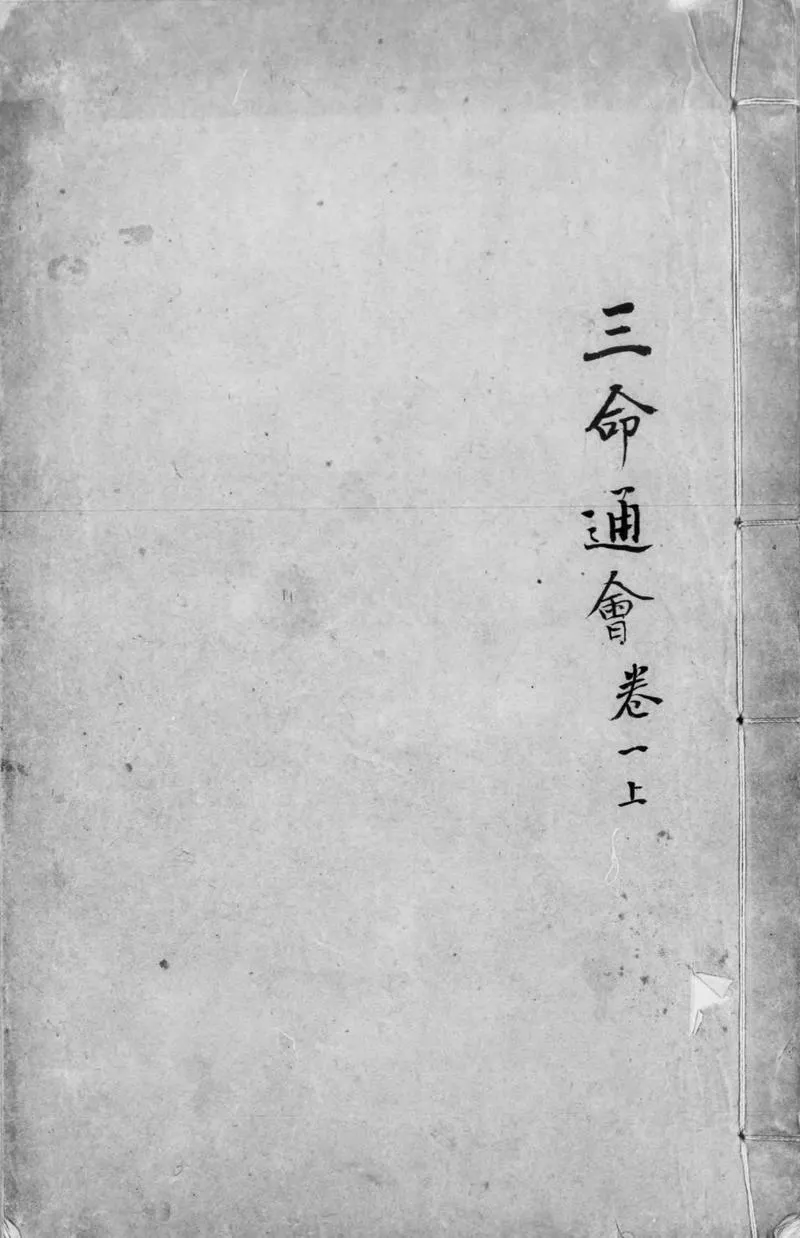 三命通會卷一上